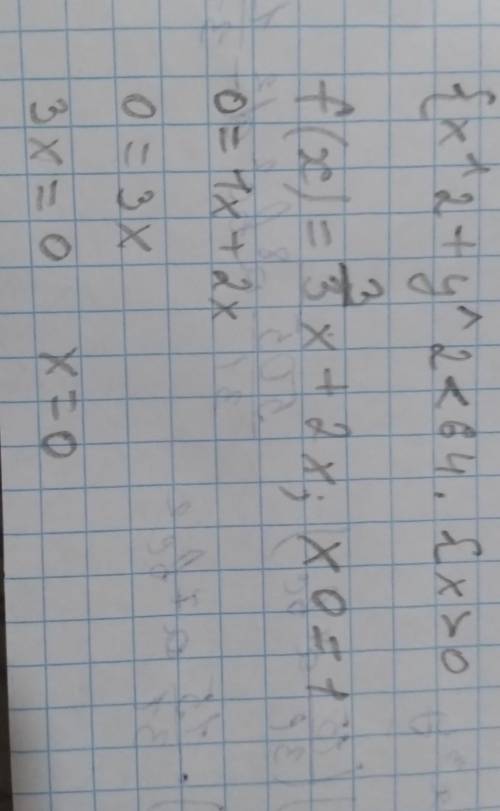 {x^2+y^2<64. {x>0
f(x)=3/3 x+2x; x0=1
0=1x+2x
0=3x
3x=0 x=0